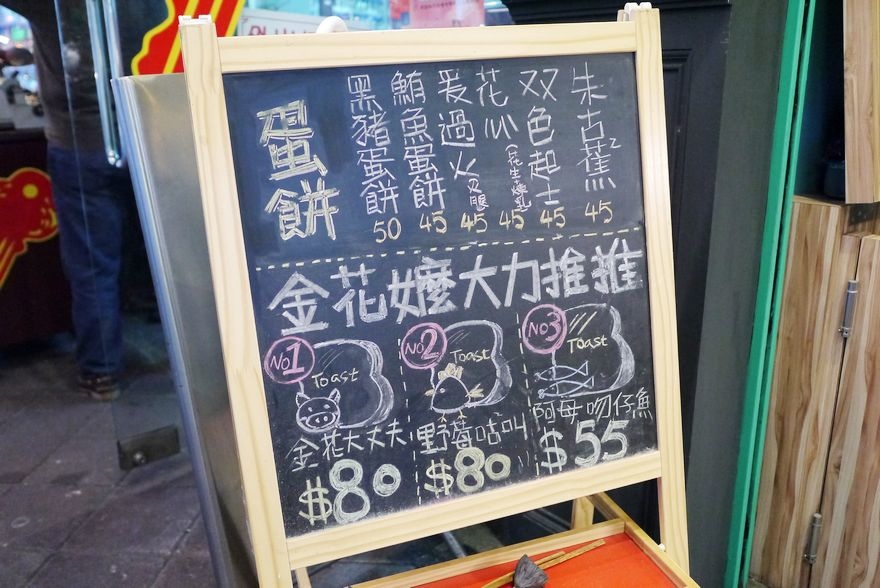 蛋餅
黑豬蛋餅 50
鮪魚蛋餅 45
爰過火(叉腿 45
花心(花生煉乳) 45
双色起士 45
朱古蕉² 45
金花嬤大力推推
NO1 Toast
NO2 Toast
NO3 Toast
金花大丈夫
$80
野莓咕叫
$80
阿母吻仔魚
$55